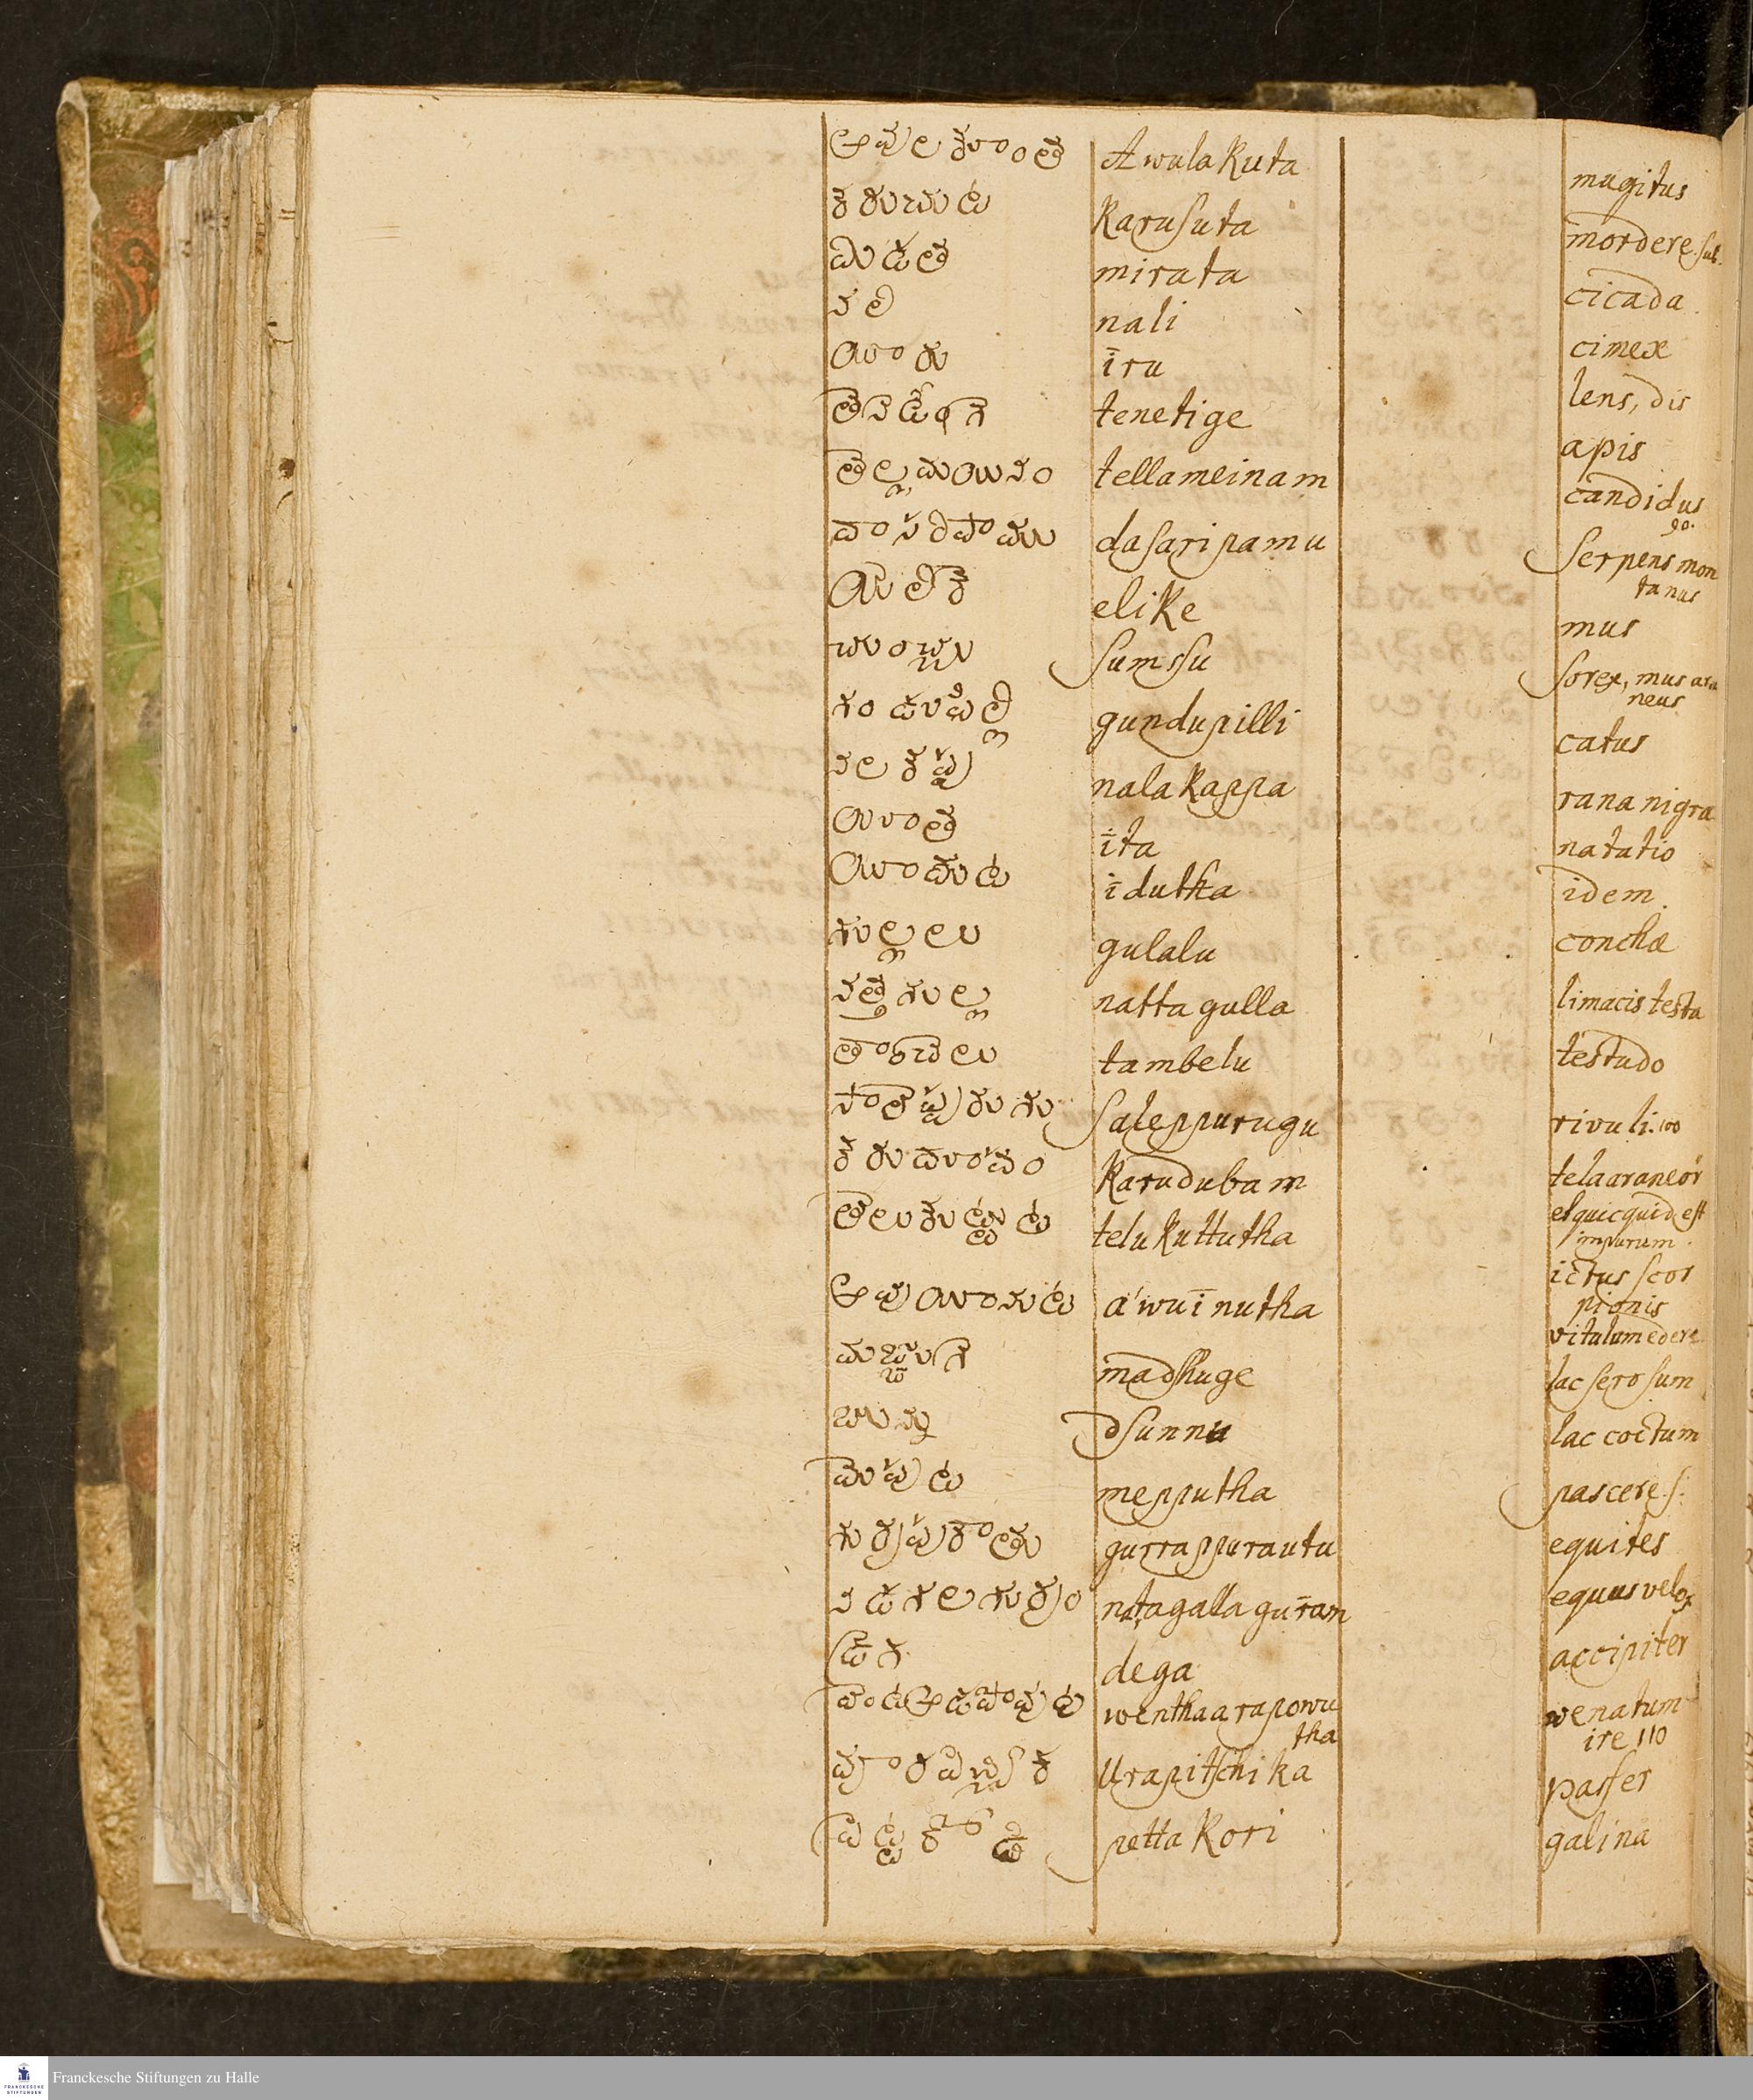 అవుల కూంత Awula Kuta mugitus
కరుసుట Karusuta mordere. sub.
మిడత mirata cicada
నలి nali cimex
ఈరు īru lens, dis
తేనెటీగె tenetige apis
తెల్ల మయినం tellameinam candidus 90.
దాసరిపాము dasaripamu Serpens montanus
యెలికె elike mus
సుంచు sumssu Sorex, mus araneus
గండుపిల్లి gundupilli catus
నలకప్ప nalakappa rana nigra
ఈత īta natatio
ఈదుట īdutha idem.
గుల్లలు gulalu conchæ
నత్త గుల్ల natta gulla limacis testa
తాంబేలు tambelu testudo
సాలెప్పురుగు Saleppurugu rivuli. 100
కరుదూపం Karudubam tela araneor
తేలు కుట్టుట telu Kuttutha et quicquid est impurum.
అవు ఈనుట a'wuīnutha ictus scorpionis
vitulum edere
మజ్జుగె madshuge lac serosum
జున్ను dsunnu lac coctum
మేప్పుట mepputha pascere. s:
గుర్రప్పురాతు gurrappurautu equites
నడగల గుర్రం natagalla gurram equus velox
డేగ dega accipiter
వేంటఆడపోవుట wenthaarapowutha wenatum ire 110
వూరపిచ్చిక Urapitschika passer
పెట్టకోడి petta Kori galina
Franckesche Stiftungen zu Halle